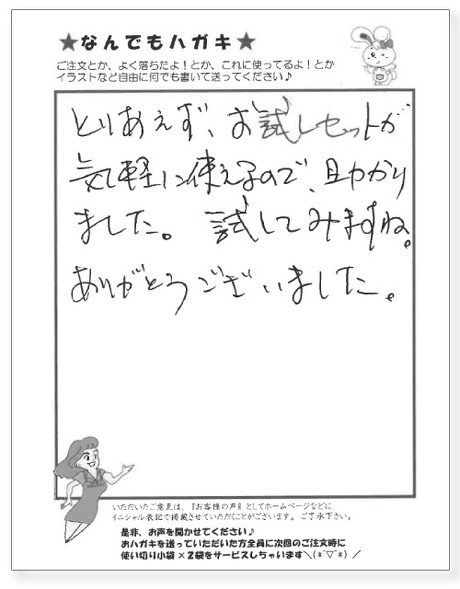 ★なんでもハガキ★
ご注文とか、よく落ちたよ！とか、これに使ってるよ！とか
イラストなど自由に何でも書いて送ってください♪
とりあえず、お試しセットが
気軽に使えるので、助かり
ました。試してみますね。
ありがとうございました。
いただいたご意見は、『お客様の声』としてホームページなどに
イニシャル表記で掲載させていただくことがございます。ご了承下さい。
是非、お声を聞かせてください♪
おハガキを送っていただいた方全員に次回のご注文時に
使い切り小袋×2袋をサービスしちゃいます＼(*´▽`*)／